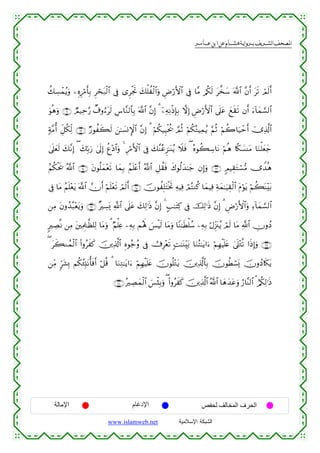 المصحف الشريف برواية هشام عن ابن عامر
أَلَمْ تَرَ أَنَّ ٱللَّهَ سَخَّرَ لَكُم مَّا فِى ٱلْأَرْضِ وَٱلْفُلْكَ تَجْرِى فِى ٱلْبَحْرِ بِأَمْرِهِۦ وَيُمْسِكُ
ٱلسَّمَآءَ أَن تَقَعَ عَلَى ٱلْأَرْضِ إِلَّا بِإِذْنِهِۦٓ ۗ إِنَّ ٱللَّهَ بِٱلنَّاسِ لَرَءُوفٌ رَّحِيمٌ ۝ وَهُوَ
ٱلَّذِىٓ أَحْيَاكُمْ ثُمَّ يُمِيتُكُمْ ثُمَّ يُحْيِيكُمْ ۗ إِنَّ ٱلْإِنسَٰنَ لَكَفُورٌ ۝ لِّكُلِّ أُمَّةٍ
جَعَلْنَا مَنسَكًا هُمْ نَاسِكُوهُ ۖ فَلَا يُنَٰزِعُنَّكَ فِى ٱلْأَمْرِ ۚ وَٱدْعُ إِلَىٰ رَبِّكَ ۖ إِنَّكَ لَعَلَىٰ
هُدًى مُّسْتَقِيمٍ ۝ وَإِن جَٰدَلُوكَ فَقُلِ ٱللَّهُ أَعْلَمُ بِمَا تَعْمَلُونَ ۝ ٱللَّهُ يَحْكُمُ
بَيْنَكُمْ يَوْمَ ٱلْقِيَٰمَةِ فِيمَا كُنتُمْ فِيهِ تَخْتَلِفُونَ ۝ أَلَمْ تَعْلَمْ أَنَّ ٱللَّهَ يَعْلَمُ مَا فِى
ٱلسَّمَآءِ وَٱلْأَرْضِ ۗ إِنَّ ذَٰلِكَ فِى كِتَٰبٍ ۚ إِنَّ ذَٰلِكَ عَلَى ٱللَّهِ يَسِيرٌ ۝ وَيَعْبُدُونَ مِن
دُونِ ٱللَّهِ مَا لَمْ يُنَزِّلْ بِهِۦ سُلْطَٰنًا وَمَا لَيْسَ لَهُم بِهِۦ عِلْمٌ ۗ وَمَا لِلظَّٰلِمِينَ مِن نَّصِيرٍ
۝ وَإِذَا تُتْلَىٰ عَلَيْهِمْ ءَايَٰتُنَا بَيِّنَٰتٍ تَعْرِفُ فِى وُجُوهِ ٱلَّذِينَ كَفَرُوا۟ ٱلْمُنكَرَ ۖ
يَكَادُونَ يَسْطُونَ بِٱلَّذِينَ يَتْلُونَ عَلَيْهِمْ ءَايَٰتِنَا ۗ قُلْ أَفَأُنَبِّئُكُم بِشَرٍّ مِّن
ذَٰلِكُمُ ۗ ٱلنَّارُ وَعَدَهَا ٱللَّهُ ٱلَّذِينَ كَفَرُوا۟ ۖ وَبِئْسَ ٱلْمَصِيرُ ۝
الحرف المخالف لحفص   الإدغام   الإمالة
الشبكة الإسلامية   www.islamweb.net